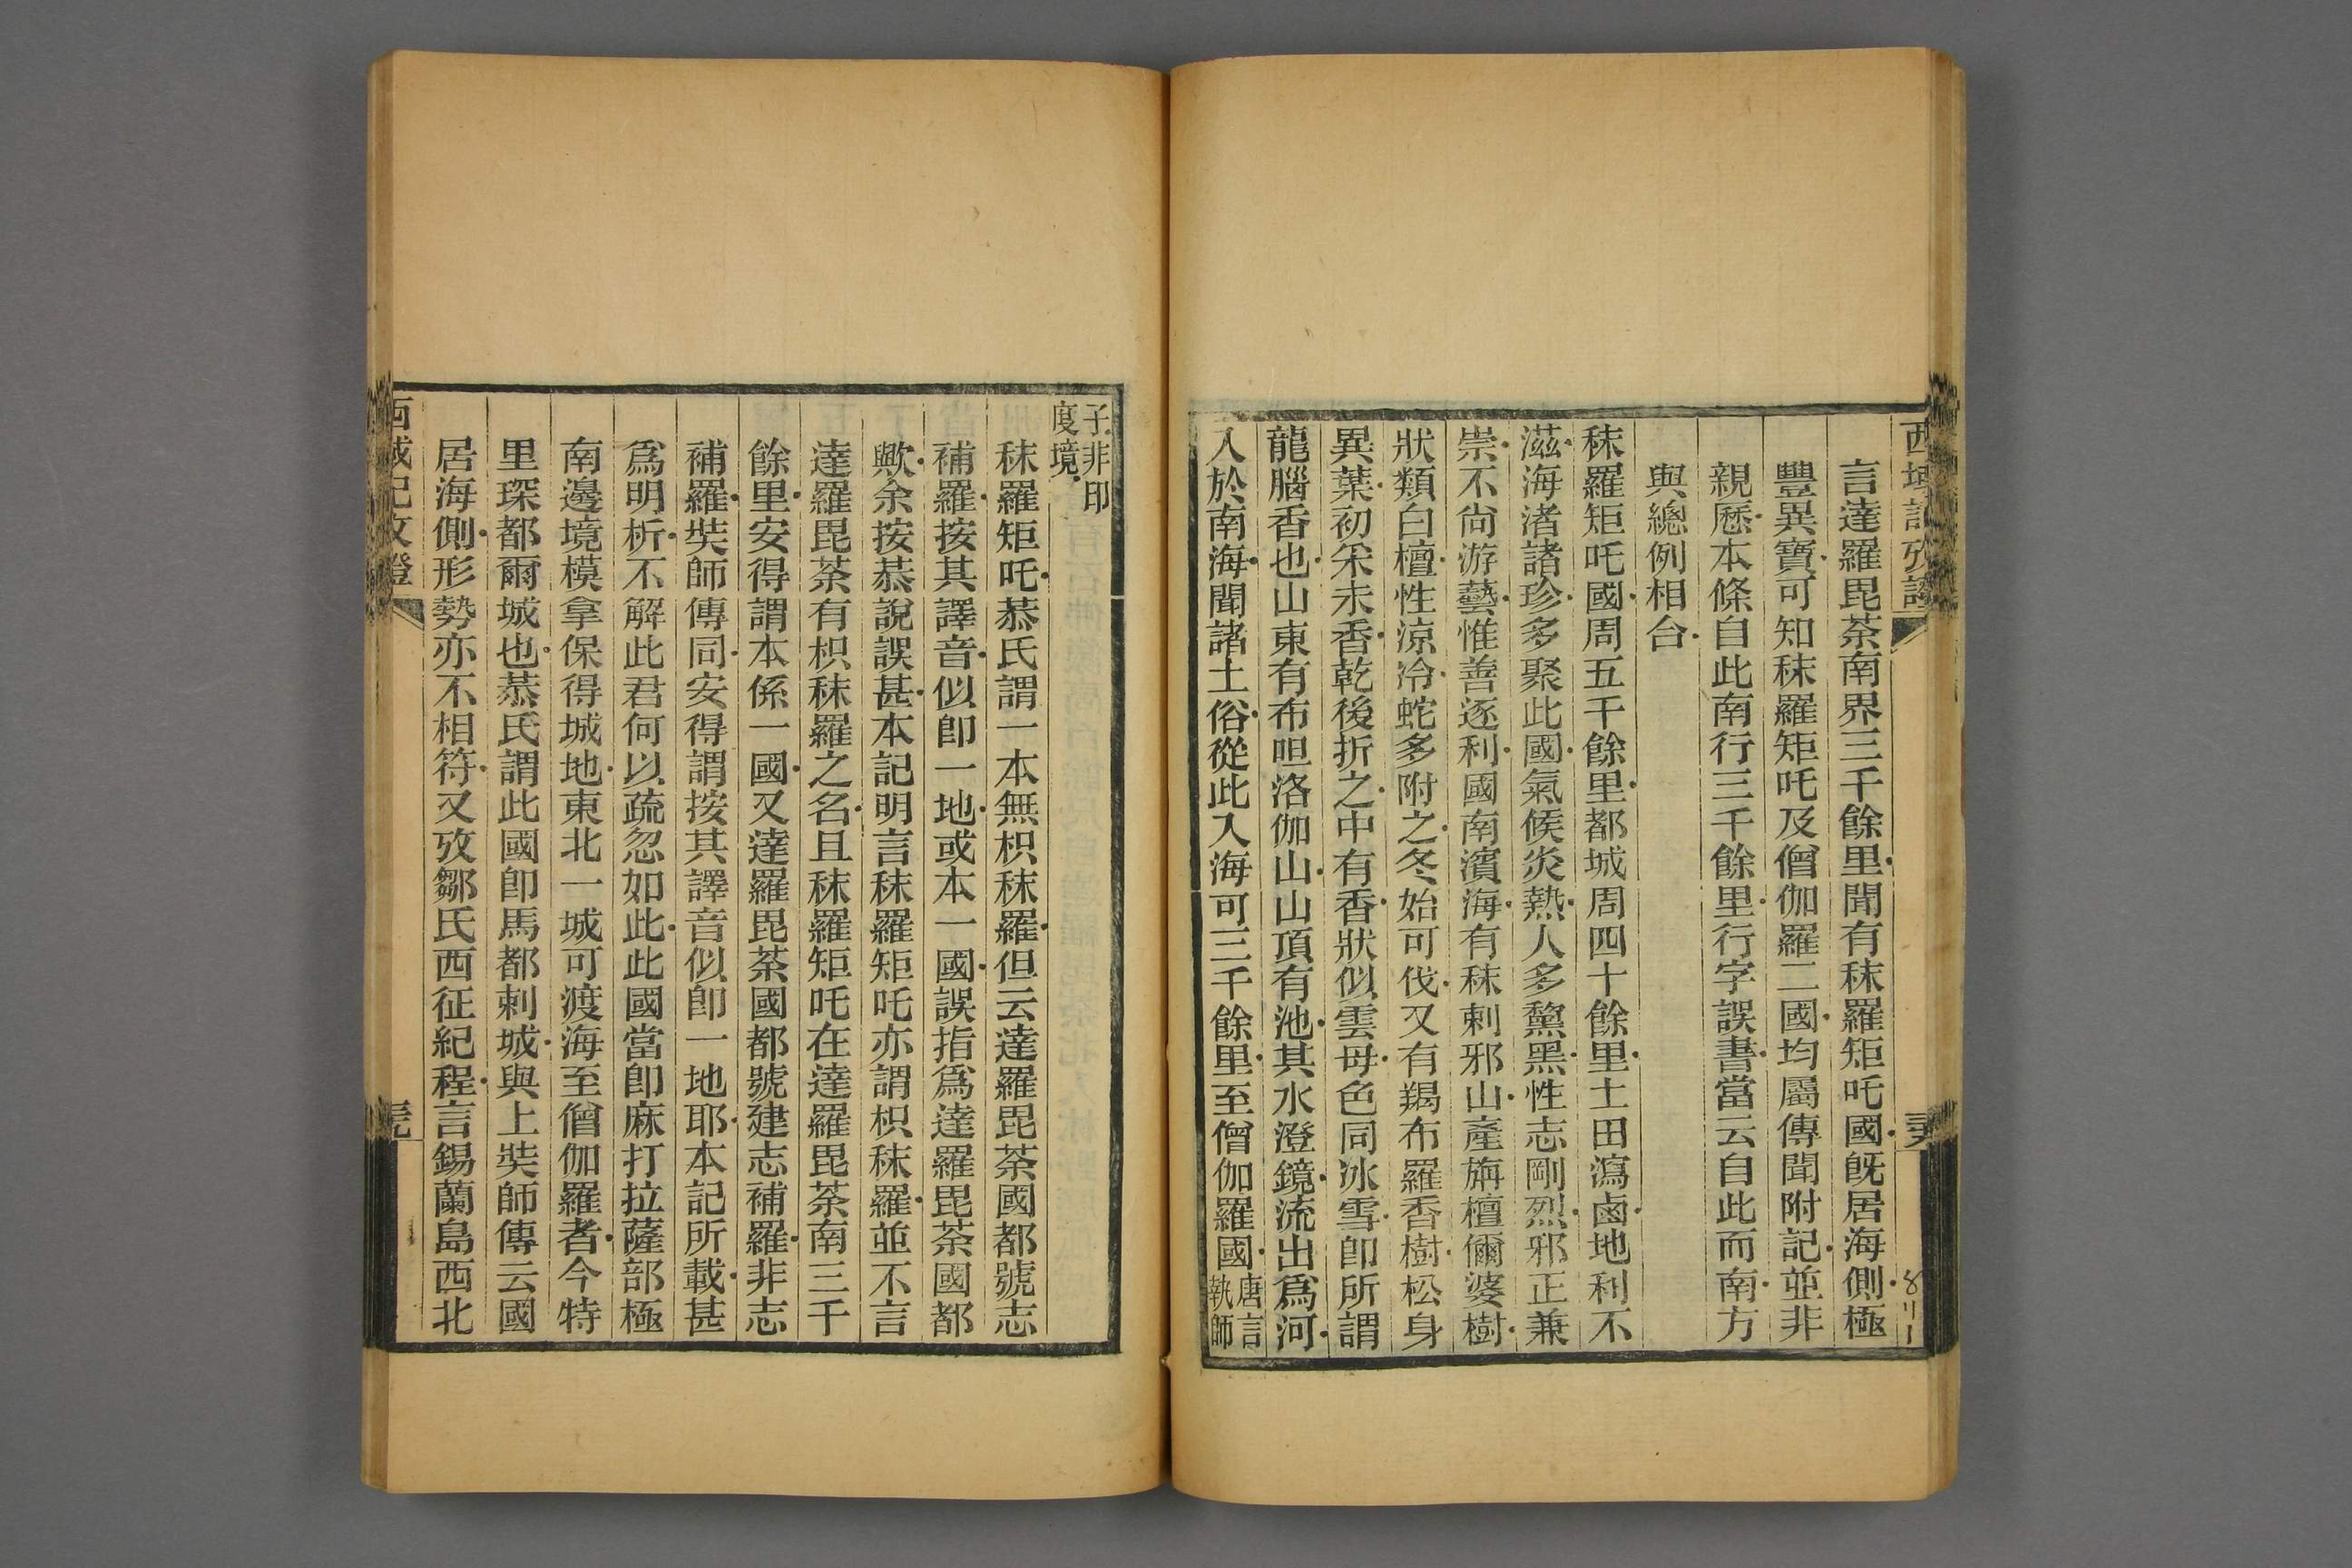 西域記攷證
言達羅毘荼南界三千餘里聞有秣羅矩吒國旣居海側極
豐異寶可知秣羅矩吒及僧伽羅二國均屬傳聞附記並非
親歷本條自此南行三千餘里行字誤書當云自此而南方
與總例相合
秣羅矩吒國周五千餘里都城周四十餘里土田瀉鹵地利不
滋海渚諸珍多聚此國氣候炎熱人多黧黑性志剛烈邪正兼
崇不尚游藝惟善逐利國南濱海有秣剌邪山產旃檀儞婆樹
狀類白檀性涼冷蛇多附之冬始可伐又有羯布羅香樹松身
異葉初采未香乾後折之中有香狀似雲母色同冰雪卽所謂
龍腦香也山東有布呾洛伽山山頂有池其水澄鏡流出爲河
入於南海聞諸土俗從此入海可三千餘里至僧伽羅國唐言
執師
子非印
度境
秣羅矩吒恭氏謂一本無枳秣羅但云達羅毘荼國都號志
補羅按其譯音似卽一地或本一國誤指爲達羅毘荼國都
歟余按恭說誤甚本記明言秣羅矩吒亦謂枳秣羅並不言
達羅毘荼有枳秣羅之名且秣羅矩吒在達羅毘荼南三千
餘里安得謂本係一國又達羅毘荼國都號建志補羅非志
補羅奘師傳同安得謂按其譯音似卽一地耶本記所載甚
爲明析不解此君何以疏忽如此此國當卽麻打拉薩部極
南邊境模拿保得城地東北一城可渡海至僧伽羅者今特
里琛都爾城也恭氏謂此國卽馬都剌城與上奘師傳云國
居海側形勢亦不相符又攷鄒氏西征紀程言錫蘭島西北
西域記攷證